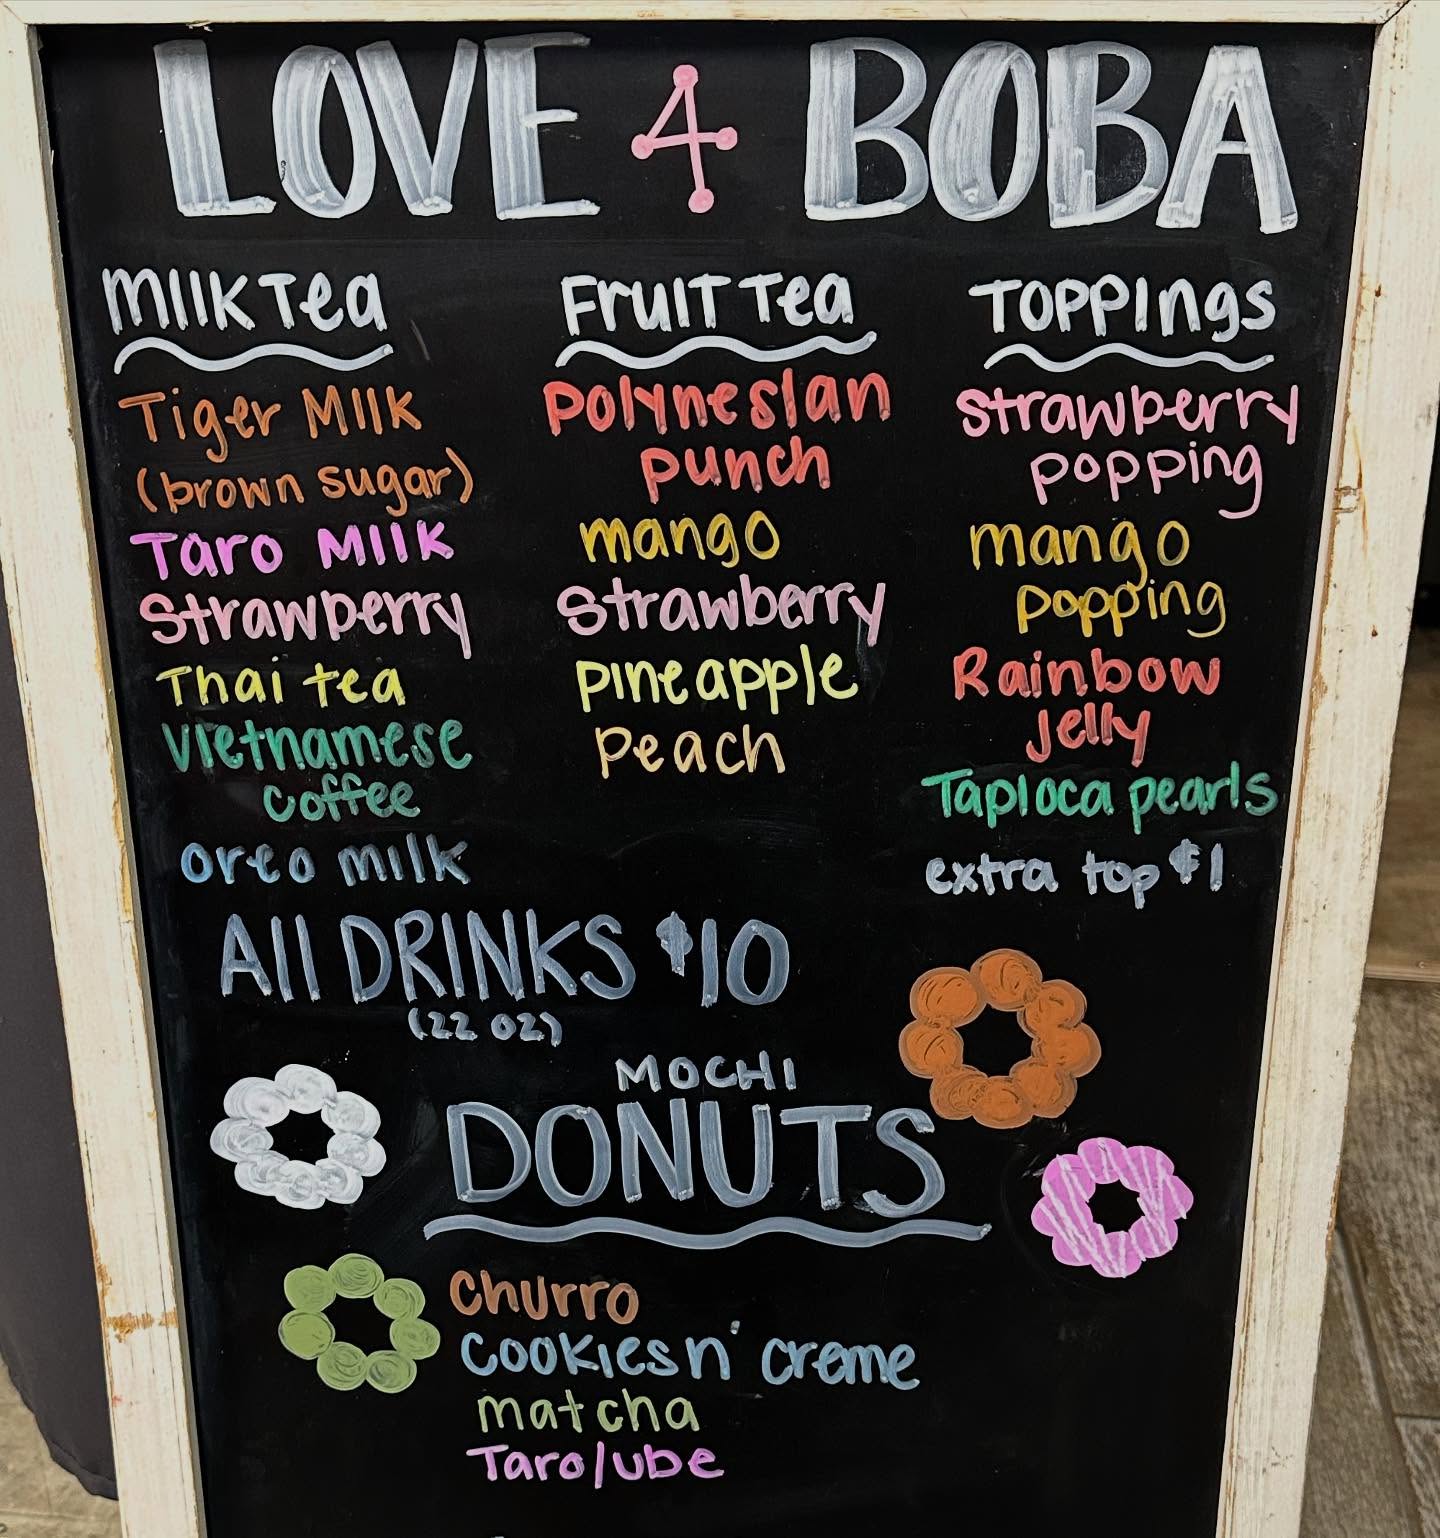 LOVE 4 BOBA
Milk Tea
Tiger Milk
(brown sugar)
Taro Milk
Strawberry
Thai tea
Vietnamese
coffee
Oreo milk
Fruit Tea
Polynesian
punch
mango
Strawberry
pineapple
peach
Toppings
Strawberry
popping
mango
popping
Rainbow
Jelly
Tapioca pearls
extra top $1
All DRINKS $10
(22 oz)
MOCHI
DONUTS
Churro
Cookies n' creme
matcha
Taro/ube